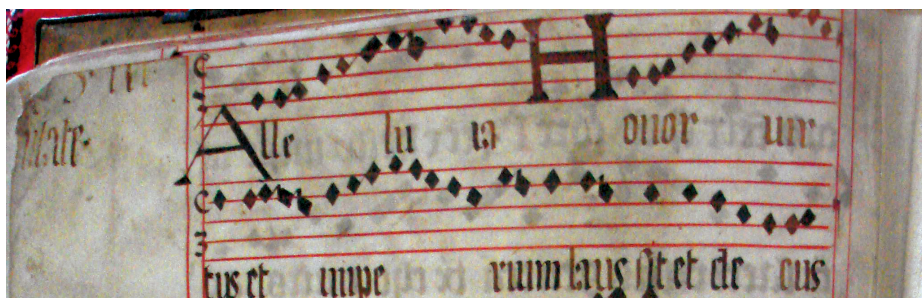 Alle lu ia Honor uir
tus et impe rium laus sit et de cus